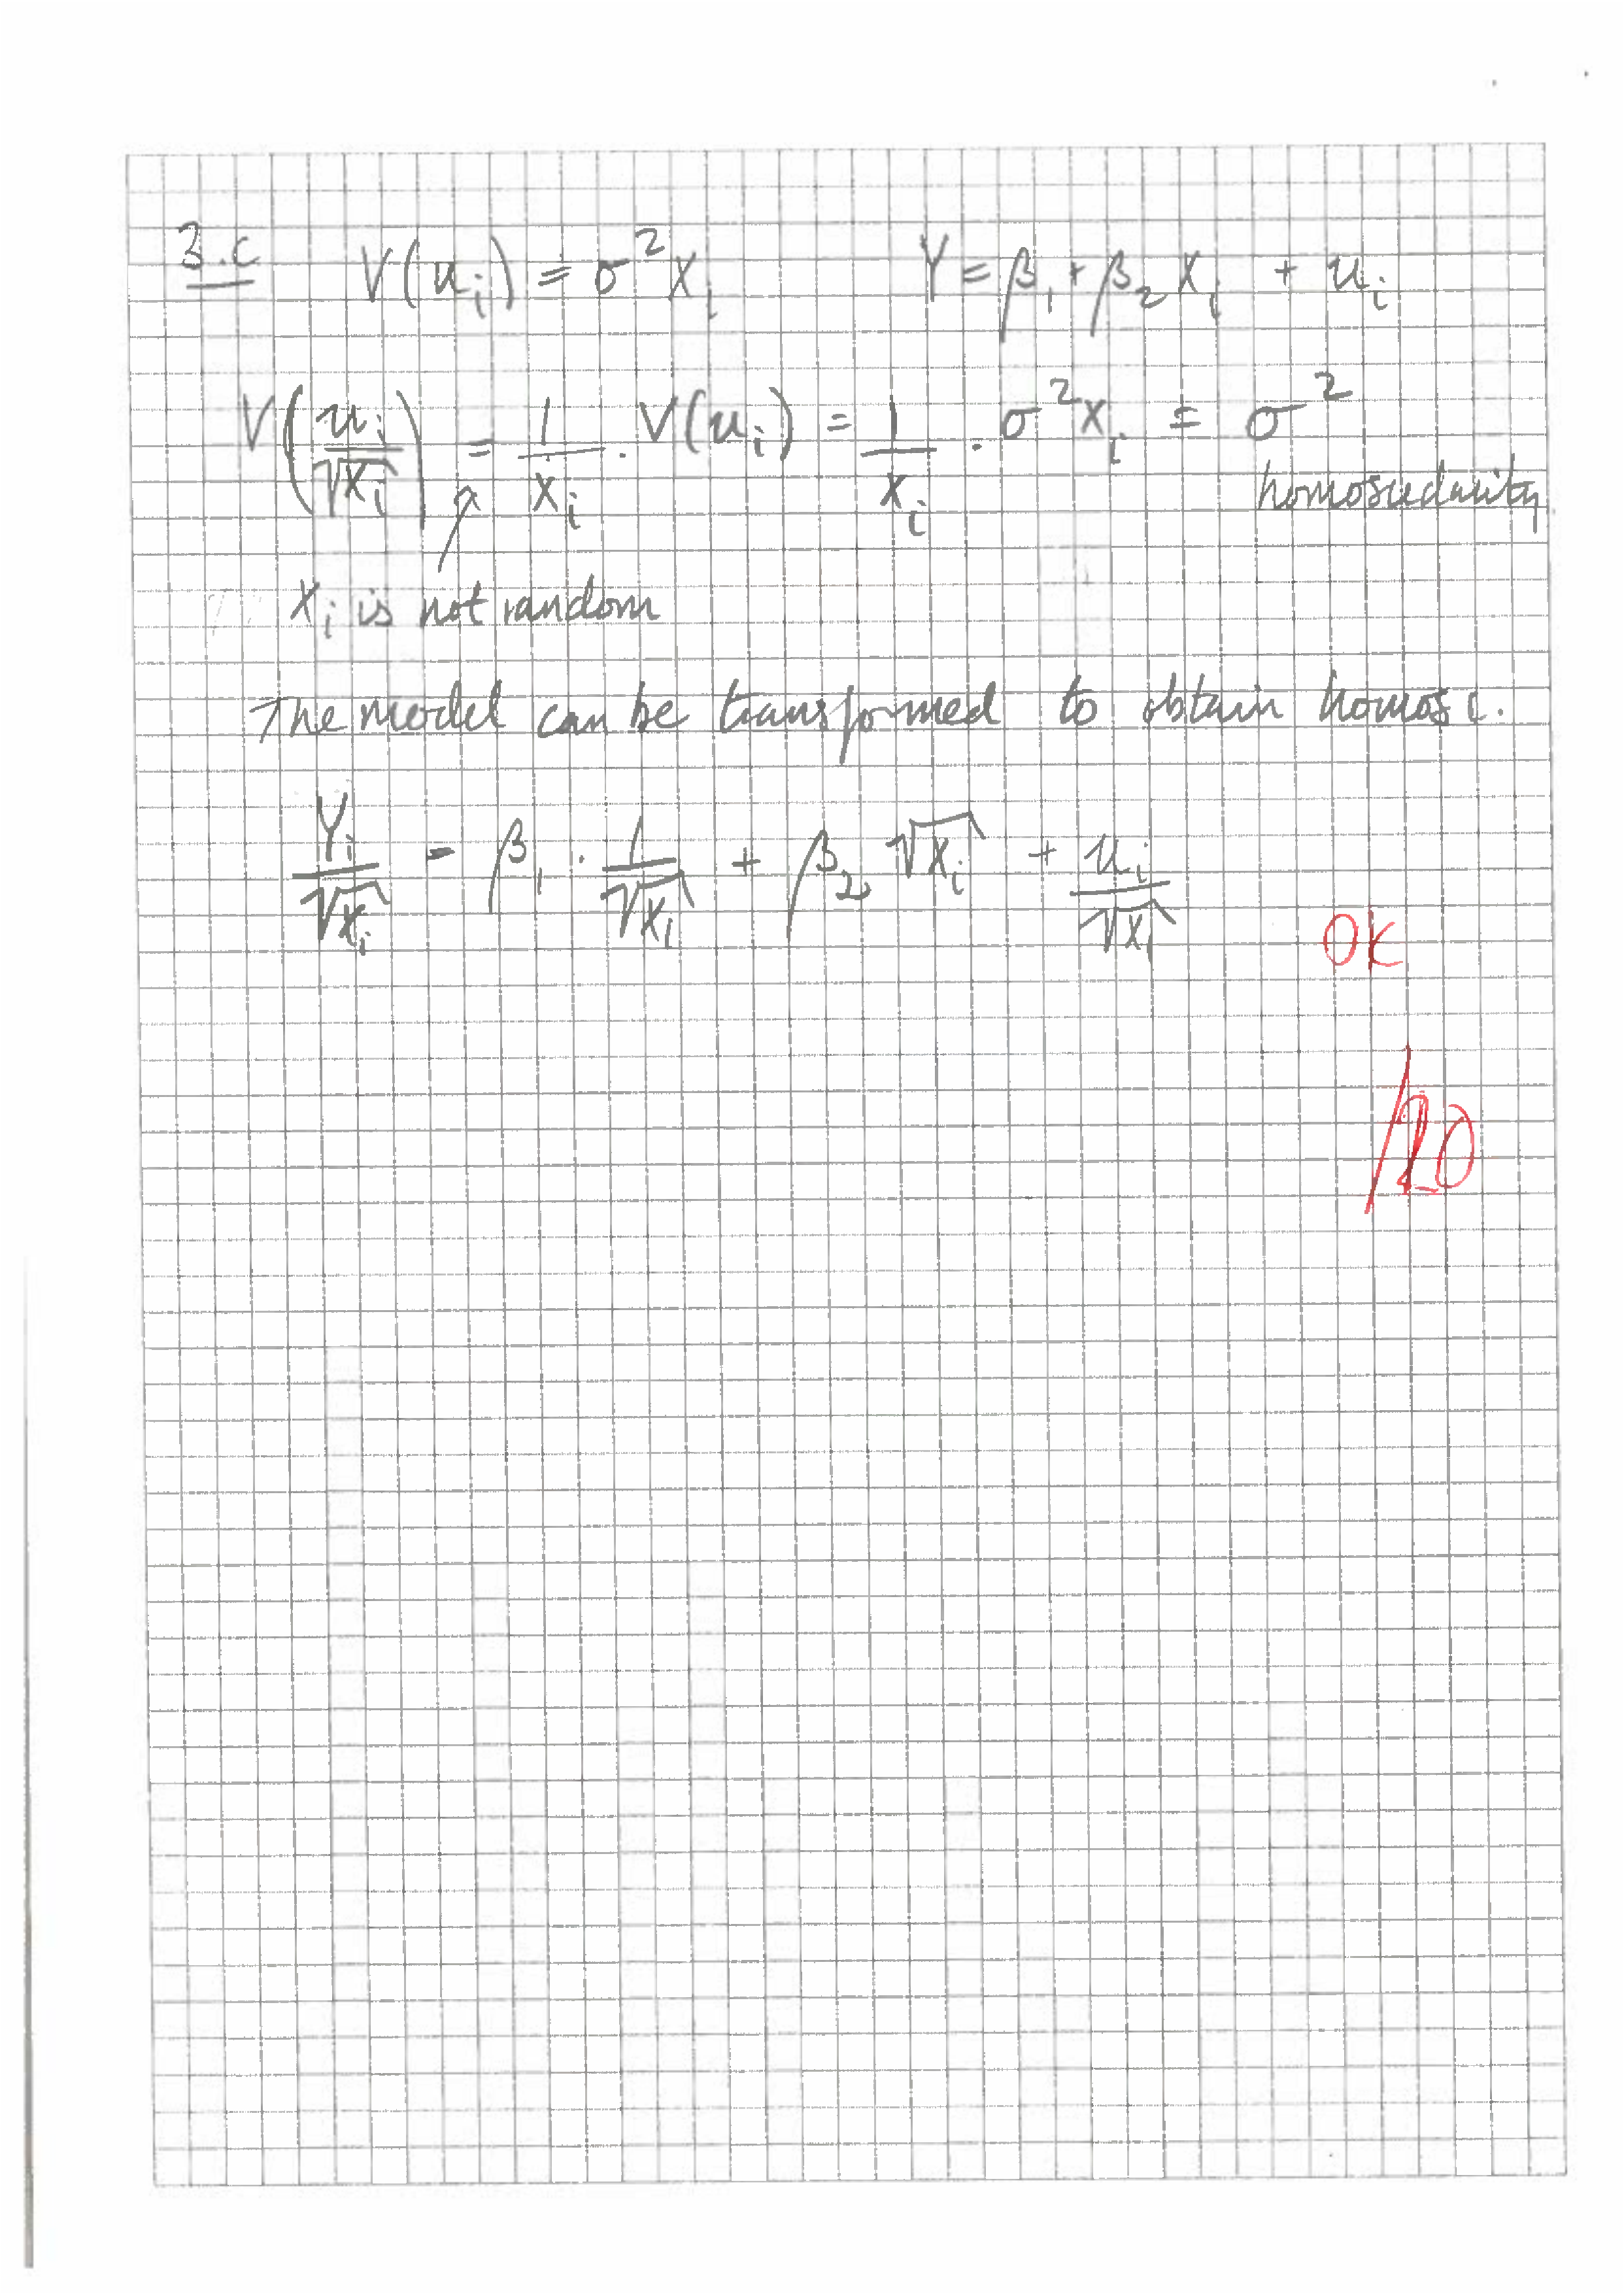 3.c V(u_i) = σ²X_i Y = β₁ + β₂ X_i + u_i
V(u_i/√X_i) = 1/X_i · V(u_i) = 1/X_i · σ²X_i = σ²
homoscedasticity
X_i is not random
The model can be transformed to obtain homosc.
Y_i/√X_i = β₁ · 1/√X_i + β₂ √X_i + u_i/√X_i
OK
/20